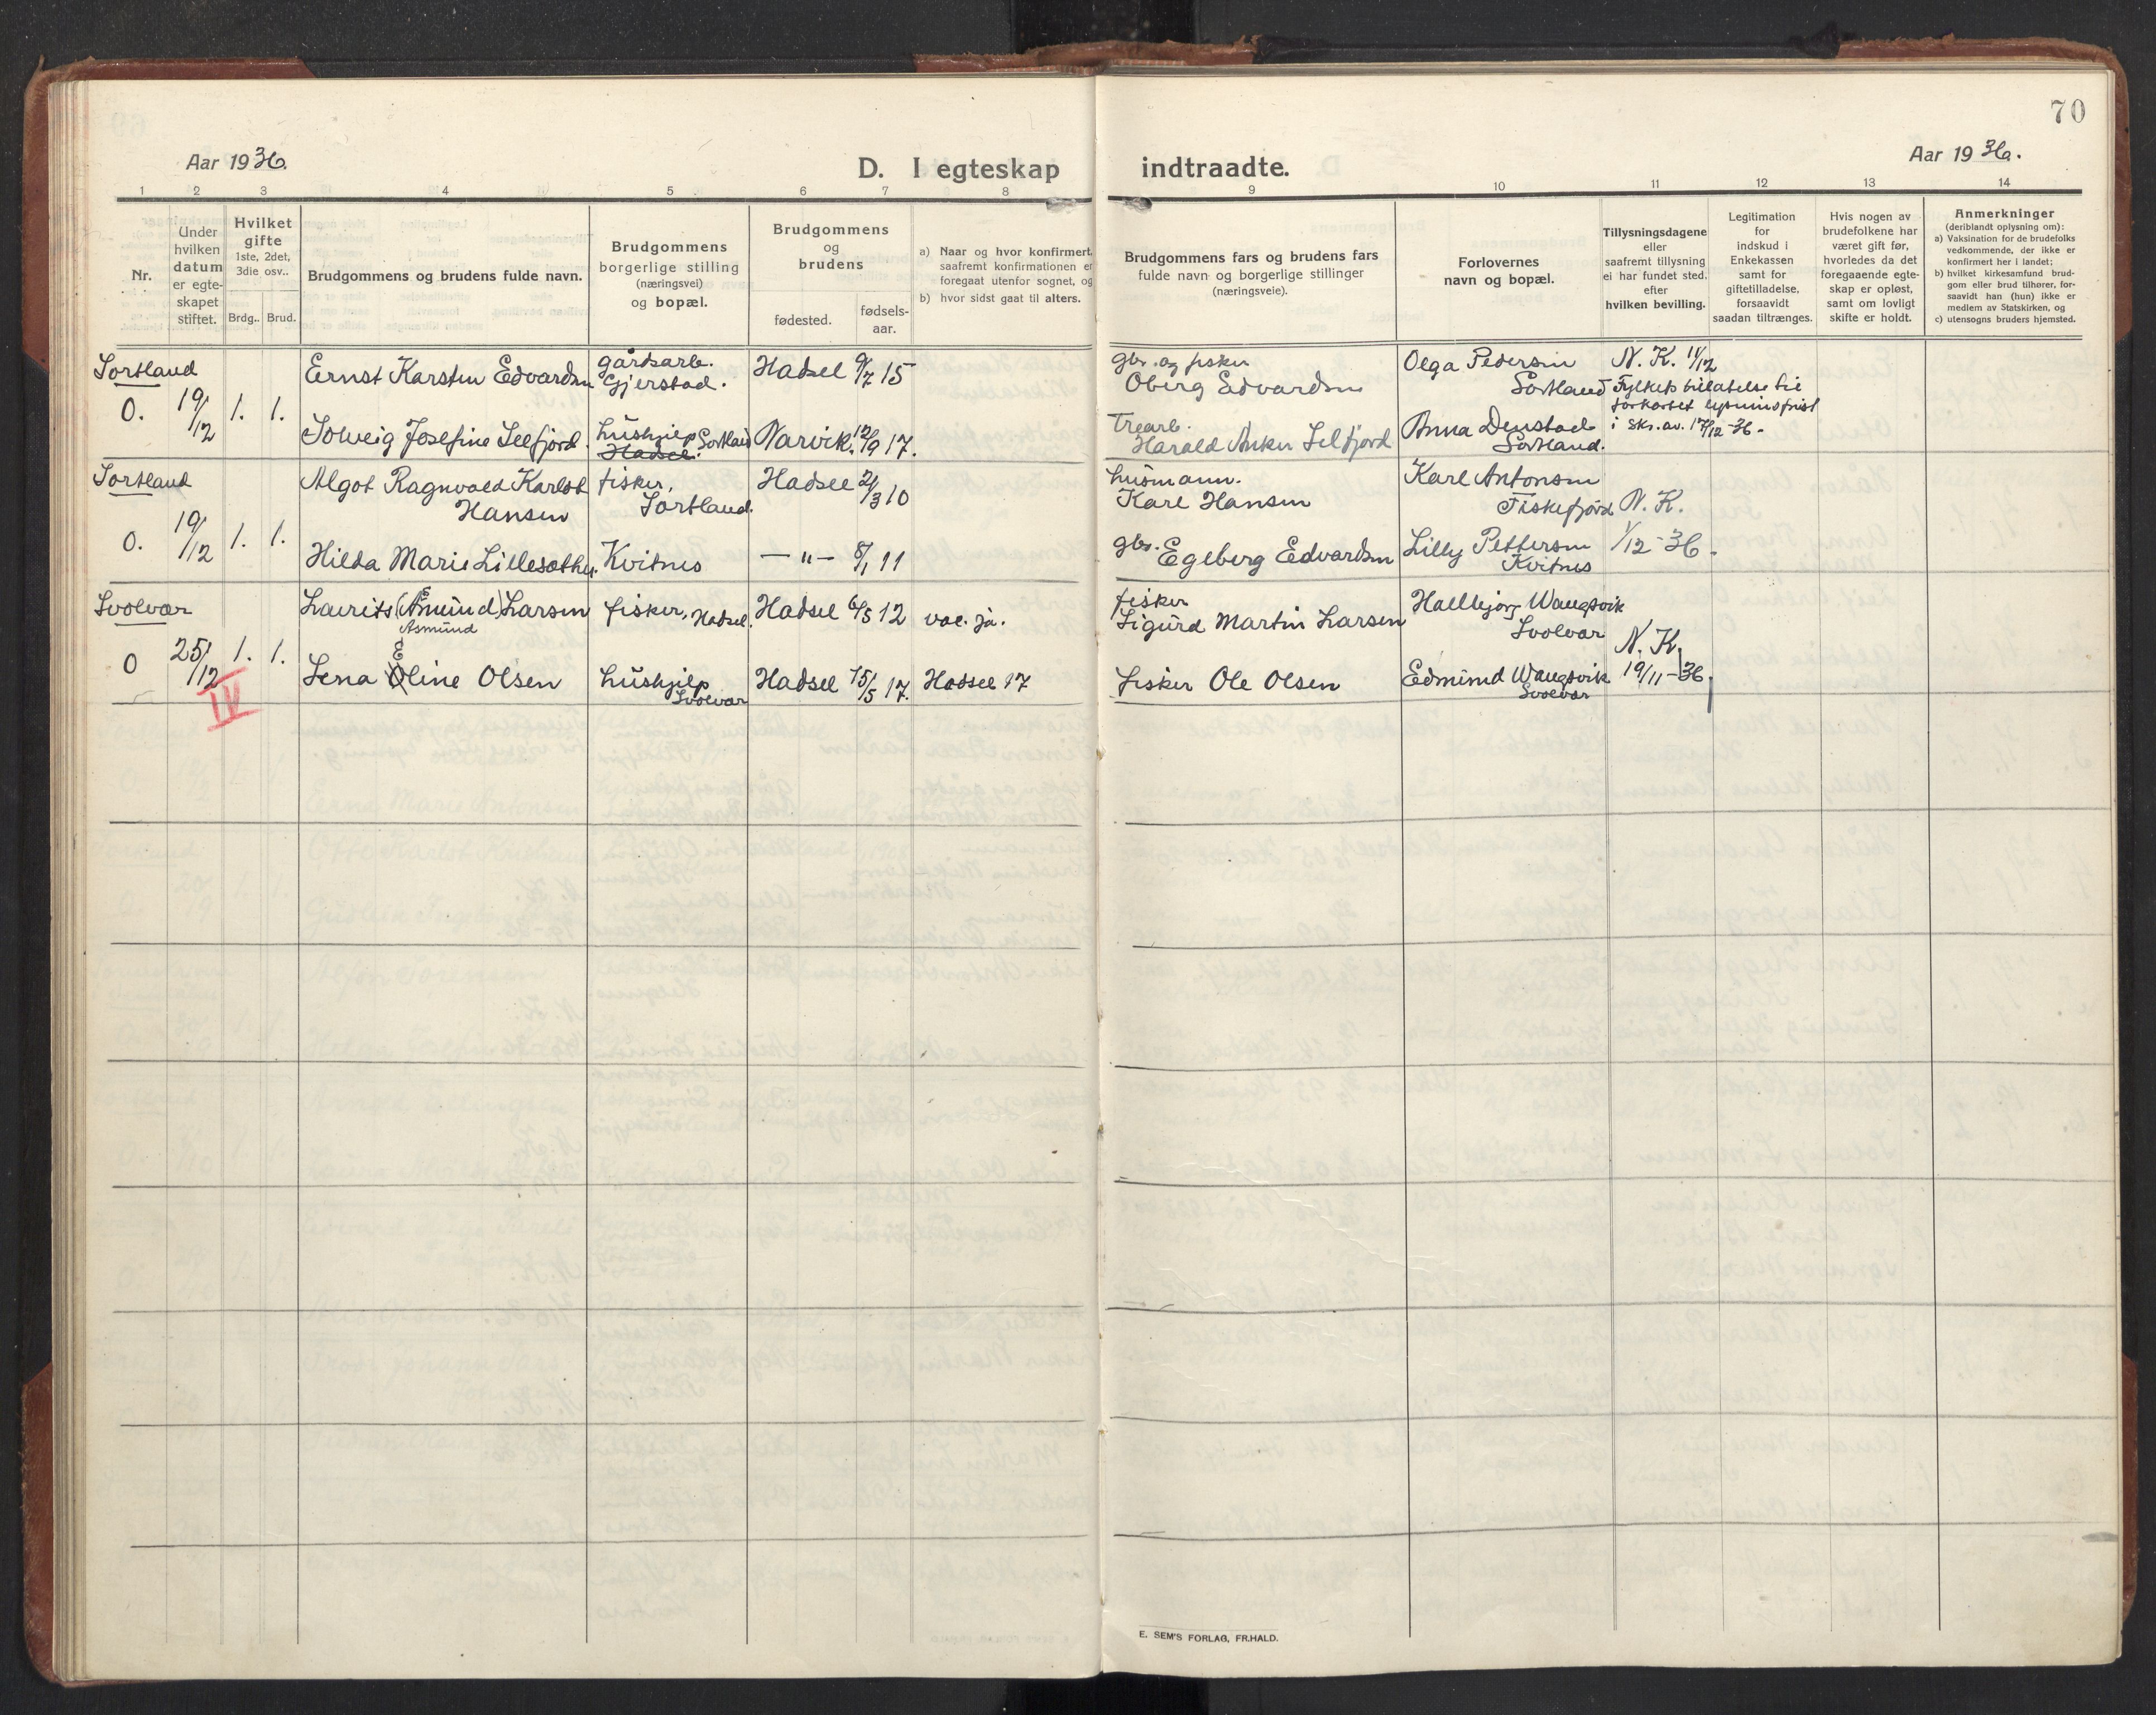 70
Aar 1936.
D. I egteskap indtraadte.
Aar 1936.
1 2 3 4 5 6 7 8 9 10 11 12 13 14
Nr.
Under
hvilken
datum
er egte-
skapet
stiftet.
Hvilket
gifte
1ste, 2det,
3die osv..
Brdg.. Brud.
Brudgommens og brudens fulde navn.
Brudgommens
borgerlige stilling
(næringsvei)
og bopæl.
Brudgommens
og
brudens
fødested.
fødsels-
aar.
a) Naar og hvor konfirmert,
saafremt konfirmationen er
foregaat utenfor sognet, og
b) hvor sidst gaat til alters.
Brudgommens fars og brudens fars
fulde navn og borgerlige stillinger
(næringsveie).
Forlovernes
navn og bopæl.
Tillysningsdagene
eller
saafremt tillysning
ei har fundet sted.
efter
hvilken bevilling.
Legitimation
for
indskud i
Enkekassen
samt for
giftetilladelse,
forsaavidt
saadan tiltrænges.
Hvis nogen av
brudefolkene har
været gift før,
hvorledes da det
foregaaende egte-
skap er opløst,
samt om lovligt
skifte er holdt.
Anmerkninger
(deriblandt oplysning om):
a) Vaksination for de brudefolks
vedkommende, der ikke er
konfirmert her i landet;
b) hvilket kirkesamfund brud-
gom eller brud tilhører, for-
saavidt han (hun) ikke er
medlem av Statskirken, og
c) utensogns bruders hjemsted.
Sortland
0. 19/12 1. 1.
Ernst Karsten Edvardsen
gårdsarb.
Gjerstad.
Hadsel 9/7 15
gbr. og fisker
Oberg Edvardsen
Olga Pedersen
Sortland
N. K. 11/12
Fylkets tillatelse til
forkortet lysningsfrist
i skr. av. 17/12-36.
Solveig Josefine Selfjord.
hushjelp Sortland
Hadsel.
Narvik. 12/9 17.
Trearb.
Harald Anker Selfjord
Anna Denstad
Sortland.
Sortland
0. 19/12 1. 1.
Algot Ragnvald Karlot
Hansen
fisker,
Sortland.
Hadsel 2/3 10
husmann.
Karl Hansen
Karl Antonsen
Fiskefjord
N. K.
1/12-36.
Hilda Marie Lillesæther.
Kvitnes
— " — 8/1 11
gbr. Egeberg Edvardsen
Lilly Pettersen
Kvitnes
Svolvær
0 25/12 1. 1.
IV
Laurits (Amund) Larsen
Asmund
fisker, Hadsel.
Hadsel 6/5 12
vac. ja.
fisker
Sigurd Martin Larsen
Hallbjørg Waagsvik
Svolvær
N. K.
19/11-36.
E
Lena Oline Olsen
hushjelp
Svolvær
Hadsel 15/5 17.
Hadsel 17
fisker Ole Olsen
Edmund Waagsvik
Svolvær
E. SEM'S FORLAG, FR.HALD.